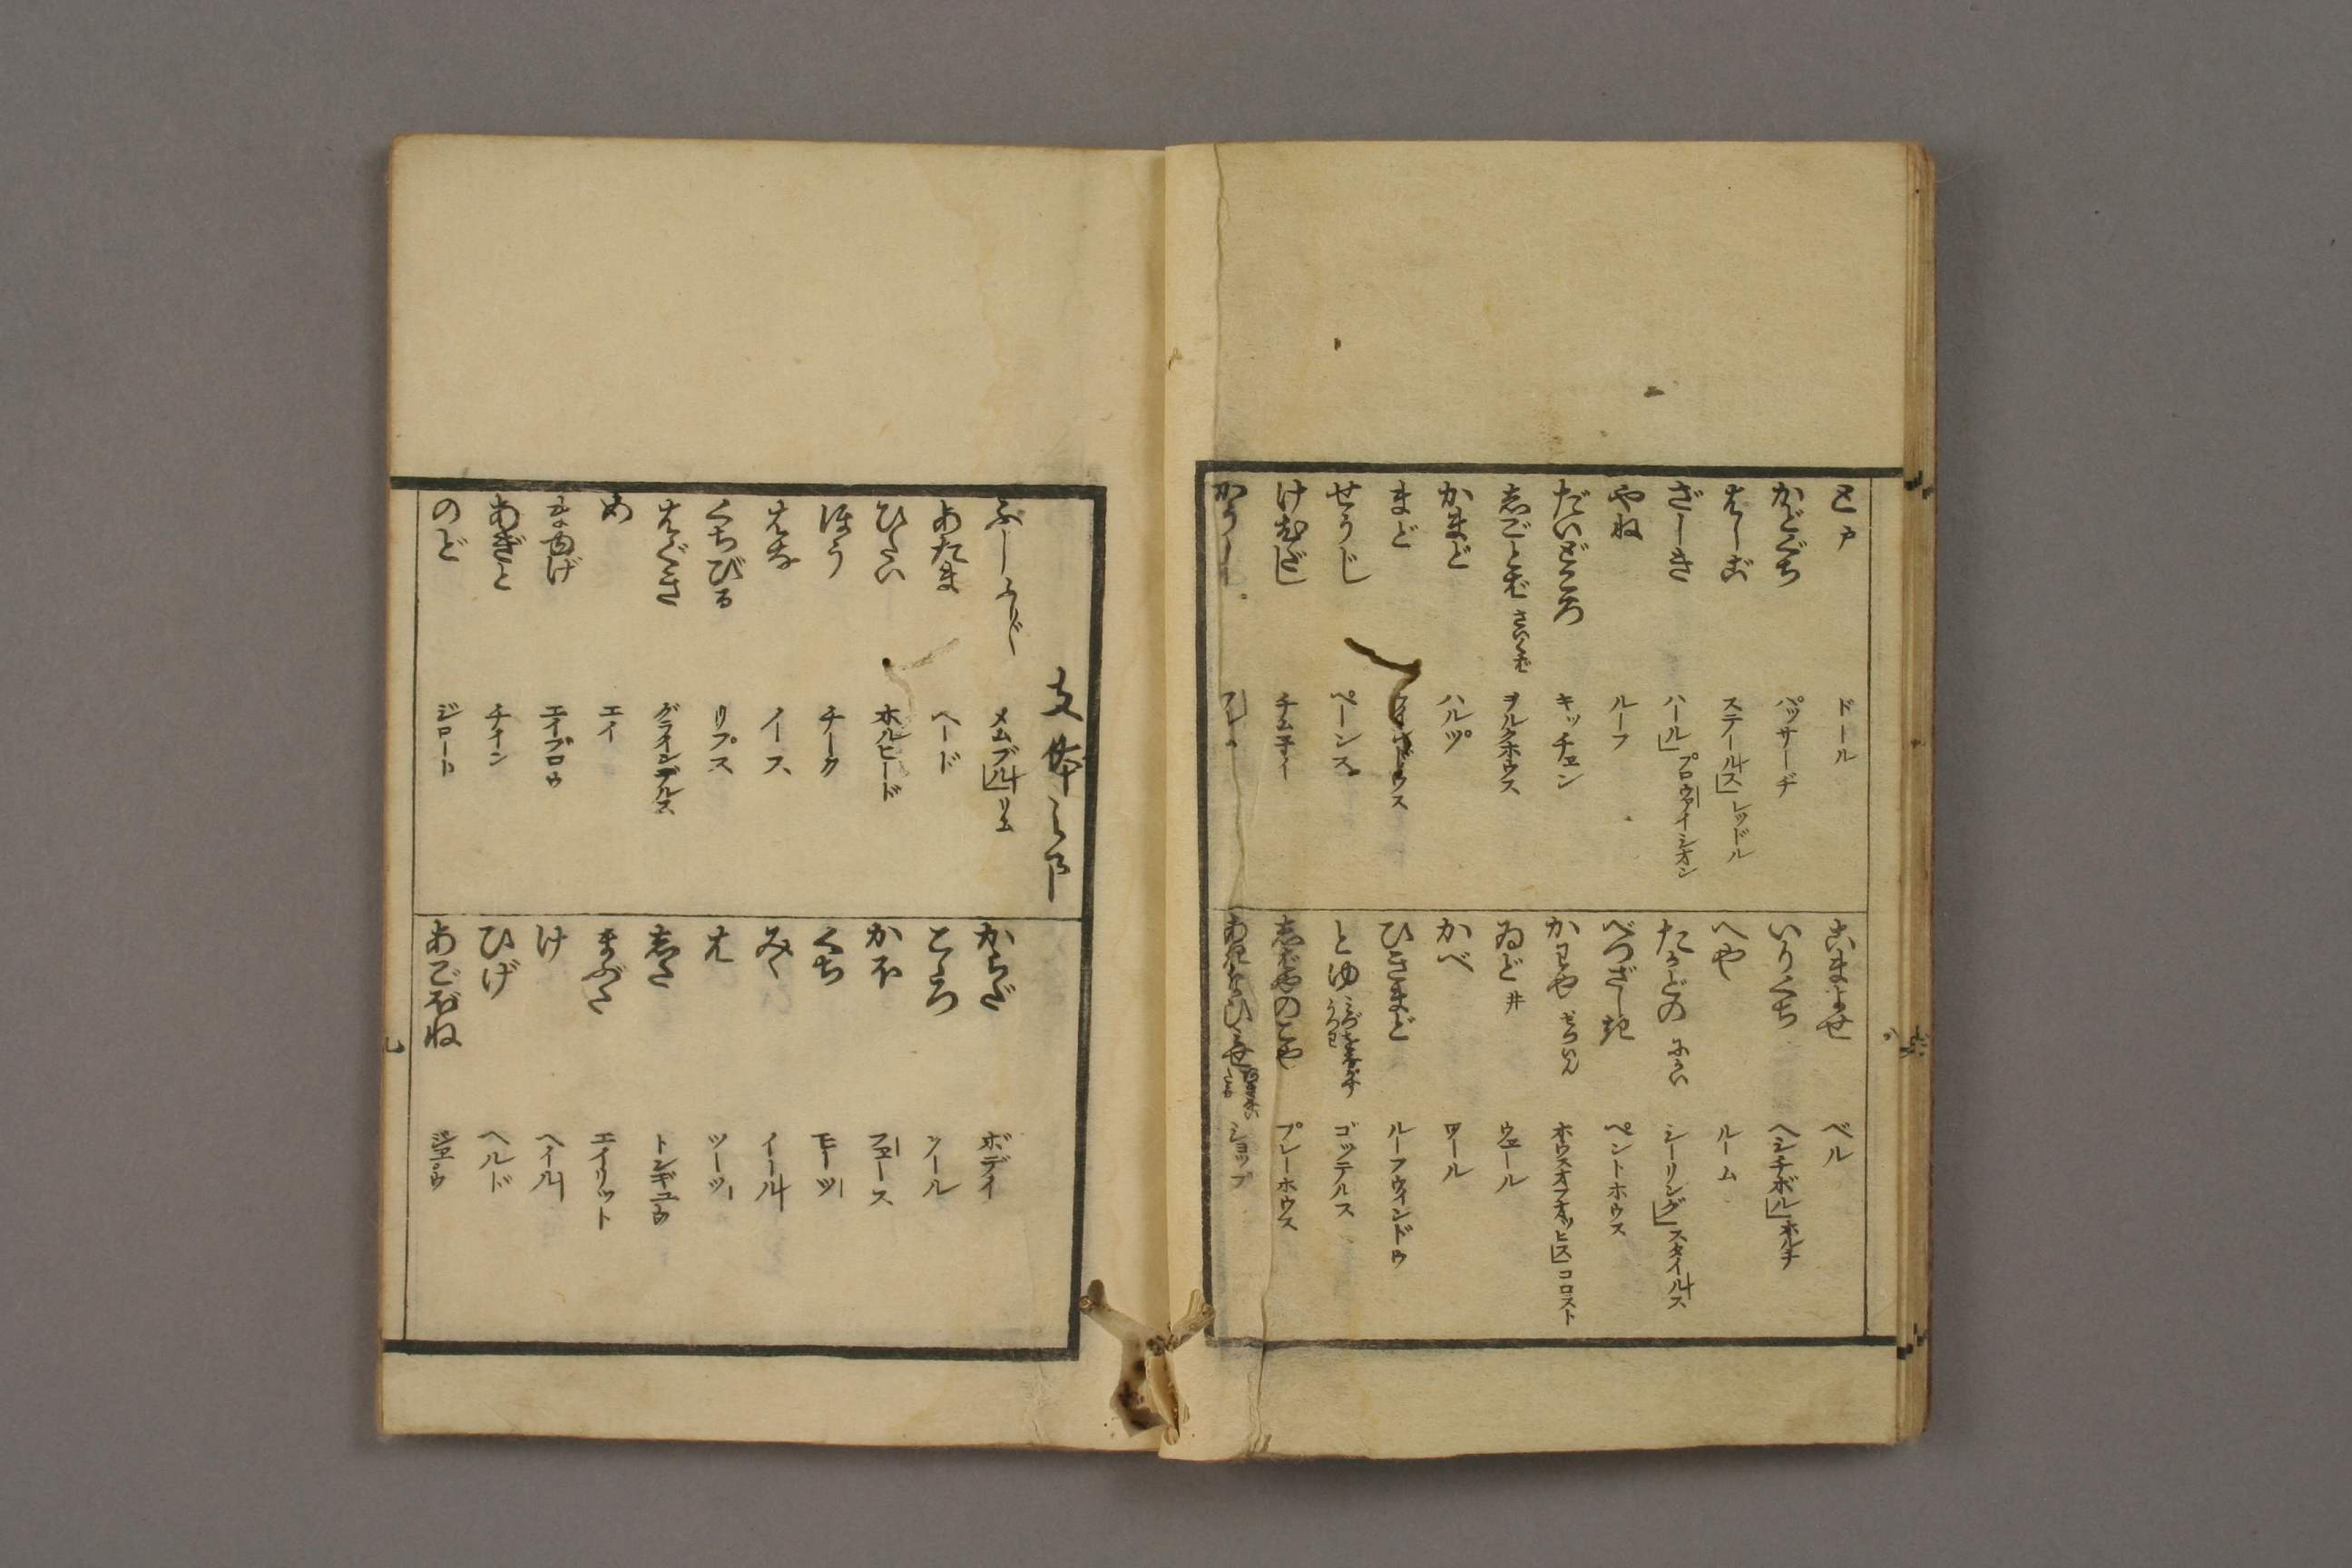 と 戸 ドール
かどぐち パッサーヂ
はしご ステールス」レッドル
ざしき ハール」プロウァイシオン
やね ルーフ
だいどころ キッチェン
しごとば さいくば ヲルクホウス
かまど ハルツ
まど
せうじ ペーンス
けむだし チム子イ
かうし
こまよせ ベル
いりくち ヘシチボル」ホルチ
へや ルーム
たかどの にかい シーリング」スタイルス
べつざしき ペントホウス
かわや せついん ホウスオフオッヒス」コロスト
ゐど 井 ウェール
かべ ワール
ひきまど ルーフウインドウ
とゆ ゴッテルス
しばゐのこや プレーホウス
ショップ
支体之部
ふしふし メムブル」リム
あたま ヘード
ひたい ホルヒード
ほう チーク
はな ノース
くちびる リプス
はぐき グラインデルス
め エイ
まゆげ エイブロウ
あぎと チイン
のど ジロート
からだ ボデイ
こころ ソール
かほ フェース
くち モーツ
みゝ イール
は ツーツ
した トンギュウ
まぶた エイリット
け ヘイル
ひげ ヘルド
あごぼね ジェウ
九